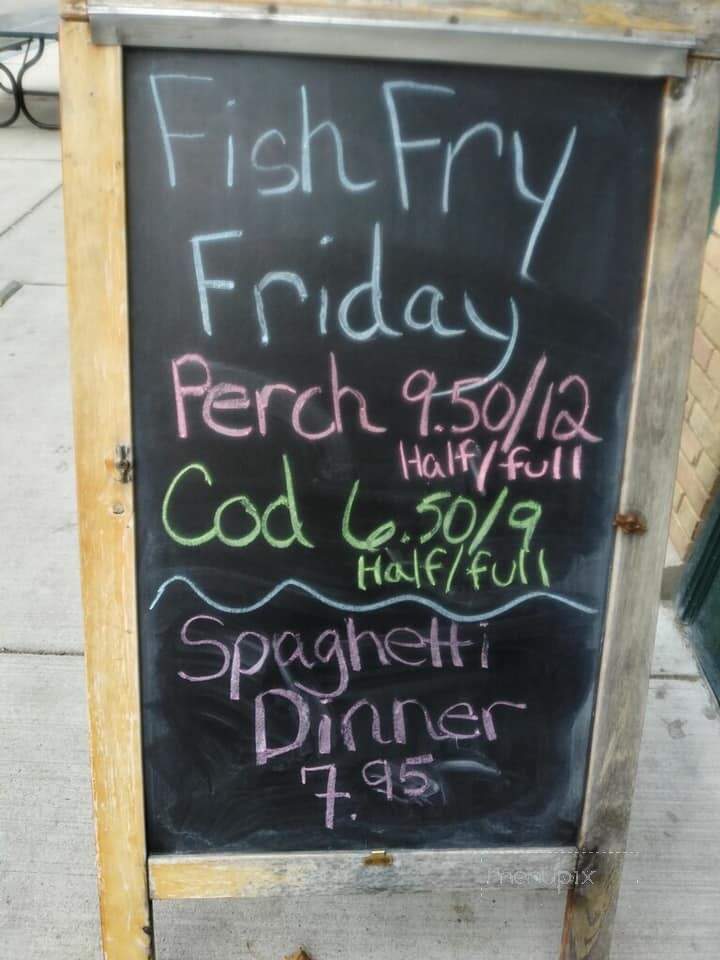 Fish Fry
Friday
Perch 9.50/12
Half/full
Cod 6.50/9
Half/full
Spaghetti
Dinner
7.95
menupix